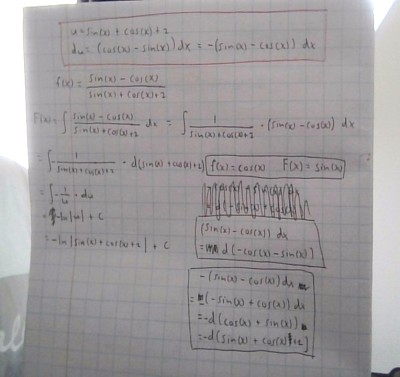 u = sin(x) + cos(x) + 2
du = (cos(x) - sin(x)) dx = -(sin(x) - cos(x)) dx
f(x) = (sin(x) - cos(x)) / (sin(x) + cos(x) + 2)
F(x) = ∫ (sin(x) - cos(x)) / (sin(x) + cos(x) + 2) dx = ∫ 1 / (sin(x) + cos(x) + 2) · (sin(x) - cos(x)) dx
= ∫ - 1 / (sin(x) + cos(x) + 2) · d(sin(x) + cos(x) + 2)
= ∫ - 1/u · du
= -ln|u| + C
= -ln|sin(x) + cos(x) + 2| + C
f(x) = cos(x) F(x) = sin(x)
(sin(x) - cos(x)) dx
= d(-cos(x) - sin(x))
-(sin(x) - cos(x)) dx
= (-sin(x) + cos(x)) dx
= -d(cos(x) + sin(x))
= -d(sin(x) + cos(x) + 2)